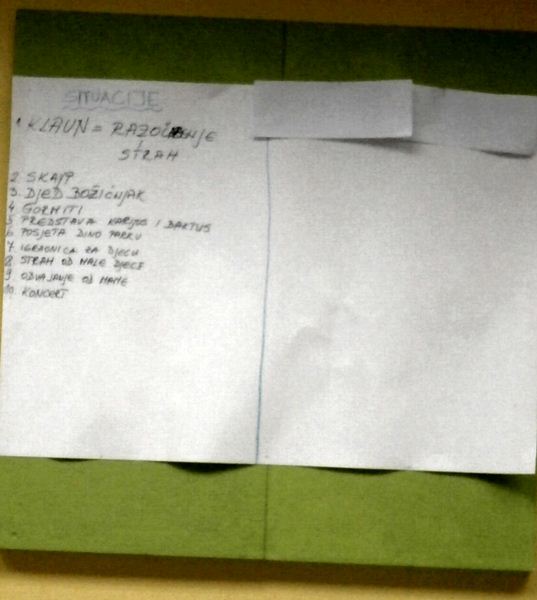 SITUACIJE
1 KLAUN = RAZOČENJE
I
STRAH
2 SKAJP
3. DJED BOŽIĆNJAK
4 GORMITI
5 PREDSTAVA KARIJUS I BAKTUS
6 POSJETA DINO PARKU
7. IGRAONICA ZA DJECU
8. STRAH OD MALE DJECE
9. ODVAJANJE OD MAME
10. KONCERT